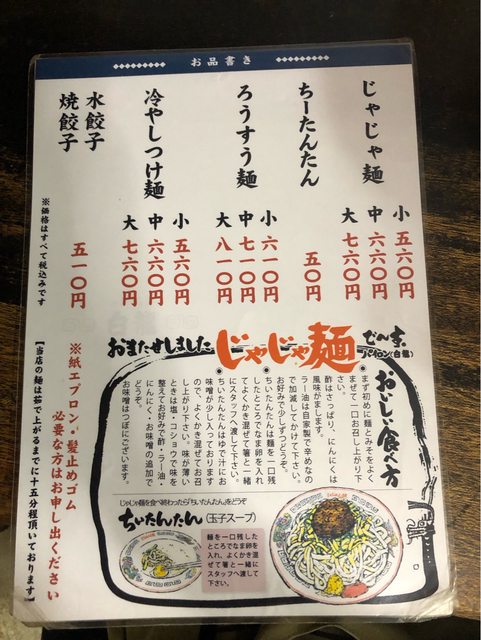 お品書き
じゃじゃ麺
小 五六〇円
中 六六〇円
大 七六〇円
ちーたんたん
五〇円
ろうすう麺
小 六一〇円
中 七一〇円
大 八一〇円
冷やしつけ麺
小 五六〇円
中 六六〇円
大 七六〇円
水餃子
焼餃子
五一〇円
※価格はすべて税込みです
おまたせしました
じゃじゃ麺
でんす。
パイロン(白龍)
おいしい食べ方
まず初めに麺とみそをよく
まぜて一口お召し上がり下
さい。
酢はさっぱり、にんにくは
風味がまします。
ラー油は自家製で辛めなの
で加減してかけて下さい。
お好みで少しずつどうぞ。
ちいたんたんは麺を一口残
したところでなま卵を入れ
てよくかき混ぜて箸と一緒
にスタッフへ渡して下さい。
ちいたんたんはゆで汁にお
味噌が少し入っております
のでよくかき混ぜてお召
し上がり下さい。味が薄い
ときは塩・コショウで味を
整えてお好みで酢・ラー油・
にんにく・お味噌の追加で
どうぞ。
お味噌はつぼにございます。
じゃじゃ麺を食べ終わったら「ちいたんたん」をどうぞ
ちいたんたん(玉子スープ)
麺を一口残した
ところでなま卵
を入れ、よくかき混
ぜて箸と一緒に
スタッフへ渡して
下さい。
※紙エプロン・髪止めゴム
必要な方はお申し出ください
【当店の麺は茹で上がるまでに十五分程頂いております】